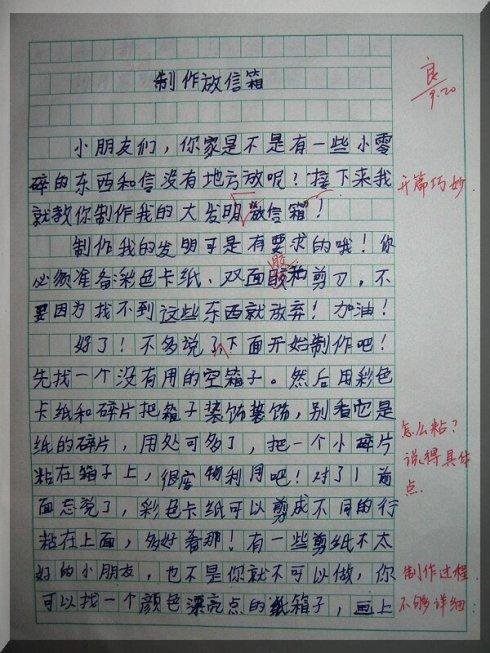 制作放信箱
良
9.20
小朋友们，你家是不是有一些小零
碎的东西和信没有地方放呢？接下来我
开篇巧妙.
就教你制作我的大发明"放信箱"！
制作我的发明可是有要求的哦！你
胶
必须准备彩色卡纸、双面胶和剪刀，不
要因为找不到这些东西就放弃！加油！
好了！不多说了下面开始制作吧！
先找一个没有用的空箱子。然后用彩色
卡纸和碎片把箱子装饰装饰，别看它是
怎么粘？
纸的碎片，用处可多了，把一个小碎片
说得具体
粘在箱子上，很废物利用吧！对了！前
点.
面忘说了，彩色卡纸可以剪成不同的行
粘在上面，多好看那！有一些剪纸不太
好的小朋友，也不是你就不可以做，你
制作过程
可以找一个颜色漂亮点的纸箱子，画上
不够详细.